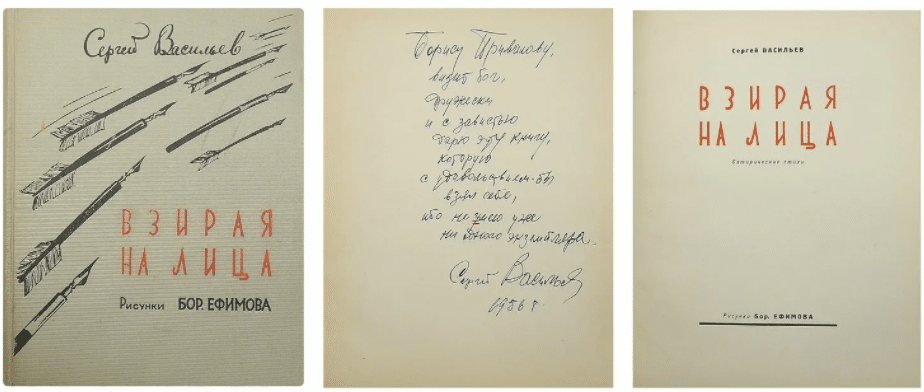 Сергей Васильев
ВЗИРАЯ
НА ЛИЦА
Рисунки БОР. ЕФИМОВА
Борису Привалову,
видит бог,
дружески
и с завистью
дарю эту книгу,
которую
с удовольствием-бы
взял себе,
ибо не имею уже
ни одного экземпляра.
Сергей Васильев
1956 г.
Сергей ВАСИЛЬЕВ
ВЗИРАЯ
НА ЛИЦА
Сатирические стихи
Рисунки Бор. ЕФИМОВА